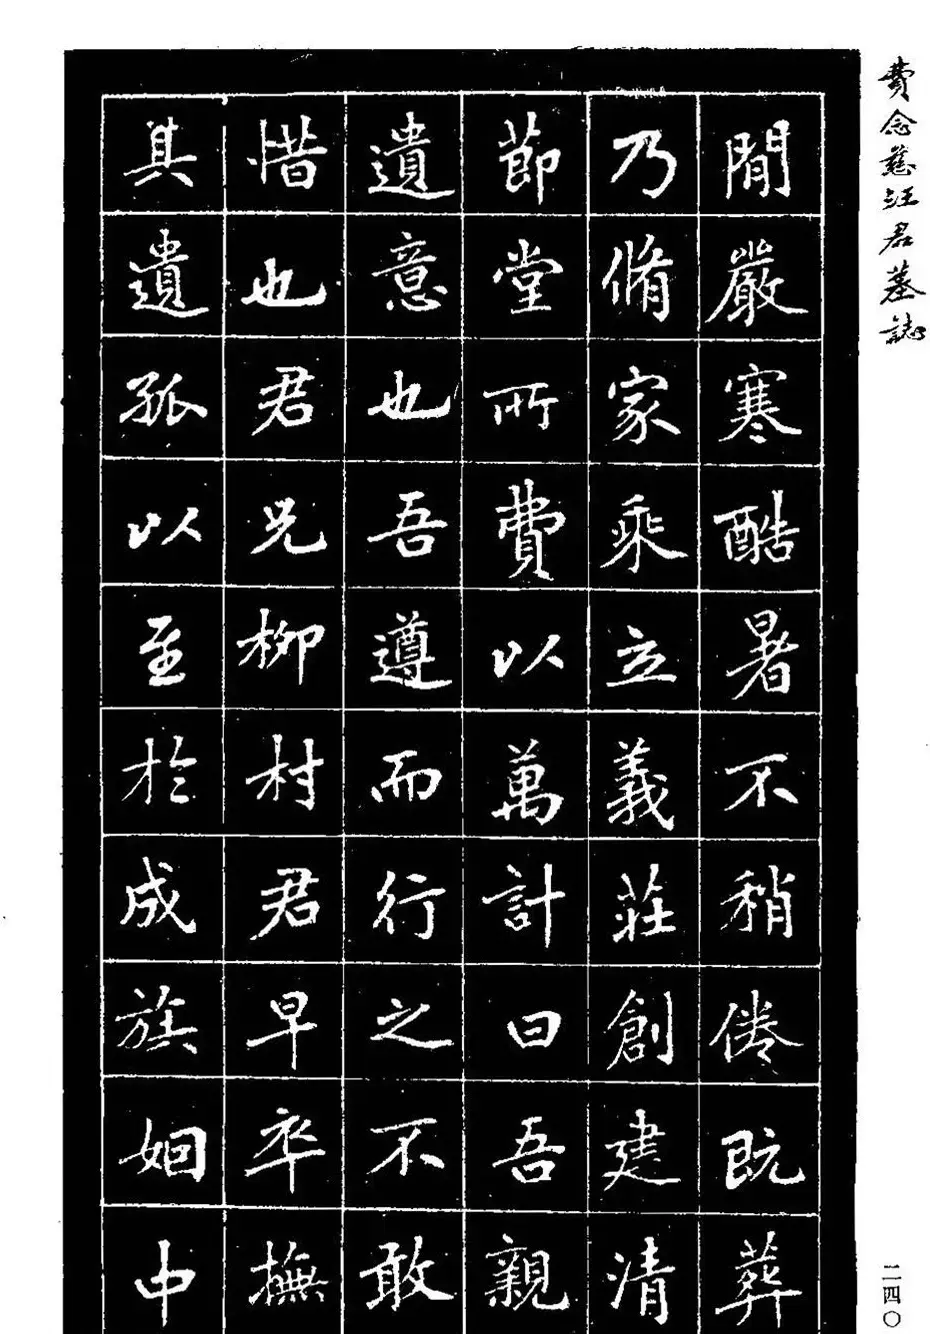 費念慈汪君墓誌
閒嚴寒酷暑不稍倦既葬
乃脩家乘立義莊創建清
節堂所費以萬計曰吾親
遺意也吾遵而行之不敢
惜也君兄柳村君早卒撫
其遺孤以至於成族姻中
二四〇